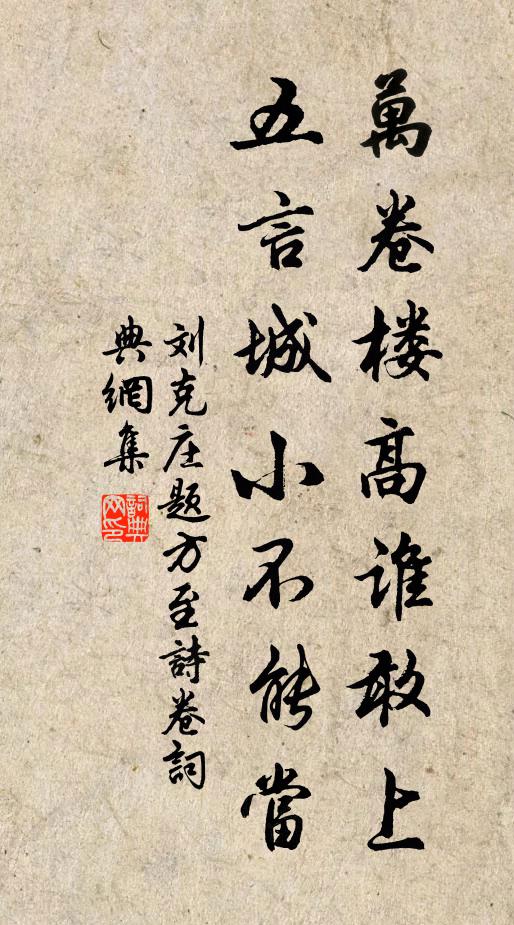 萬卷楼高誰敢上
五言城小不能當
刘克庄題方至詩卷詞
典網集
詞典
网印